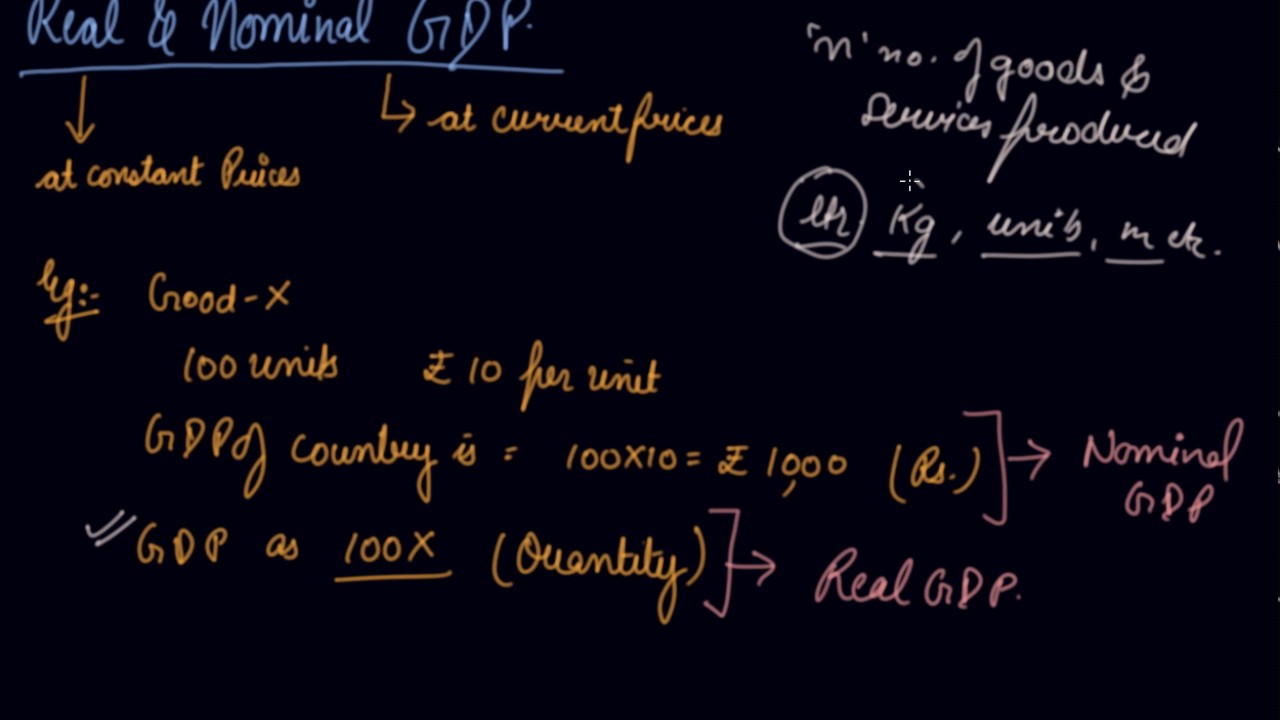 Real & Nominal GDP.
at constant Prices
at current prices
'n' no. of goods &
services produced
ltr Kg, units, m etc.
Eg:-
Good-X
100 units ₹ 10 per unit
GDP of country is = 100X10 = ₹ 1,000 (Rs.) → Nominal GDP
GDP as 100X (Quantity) → Real GDP.